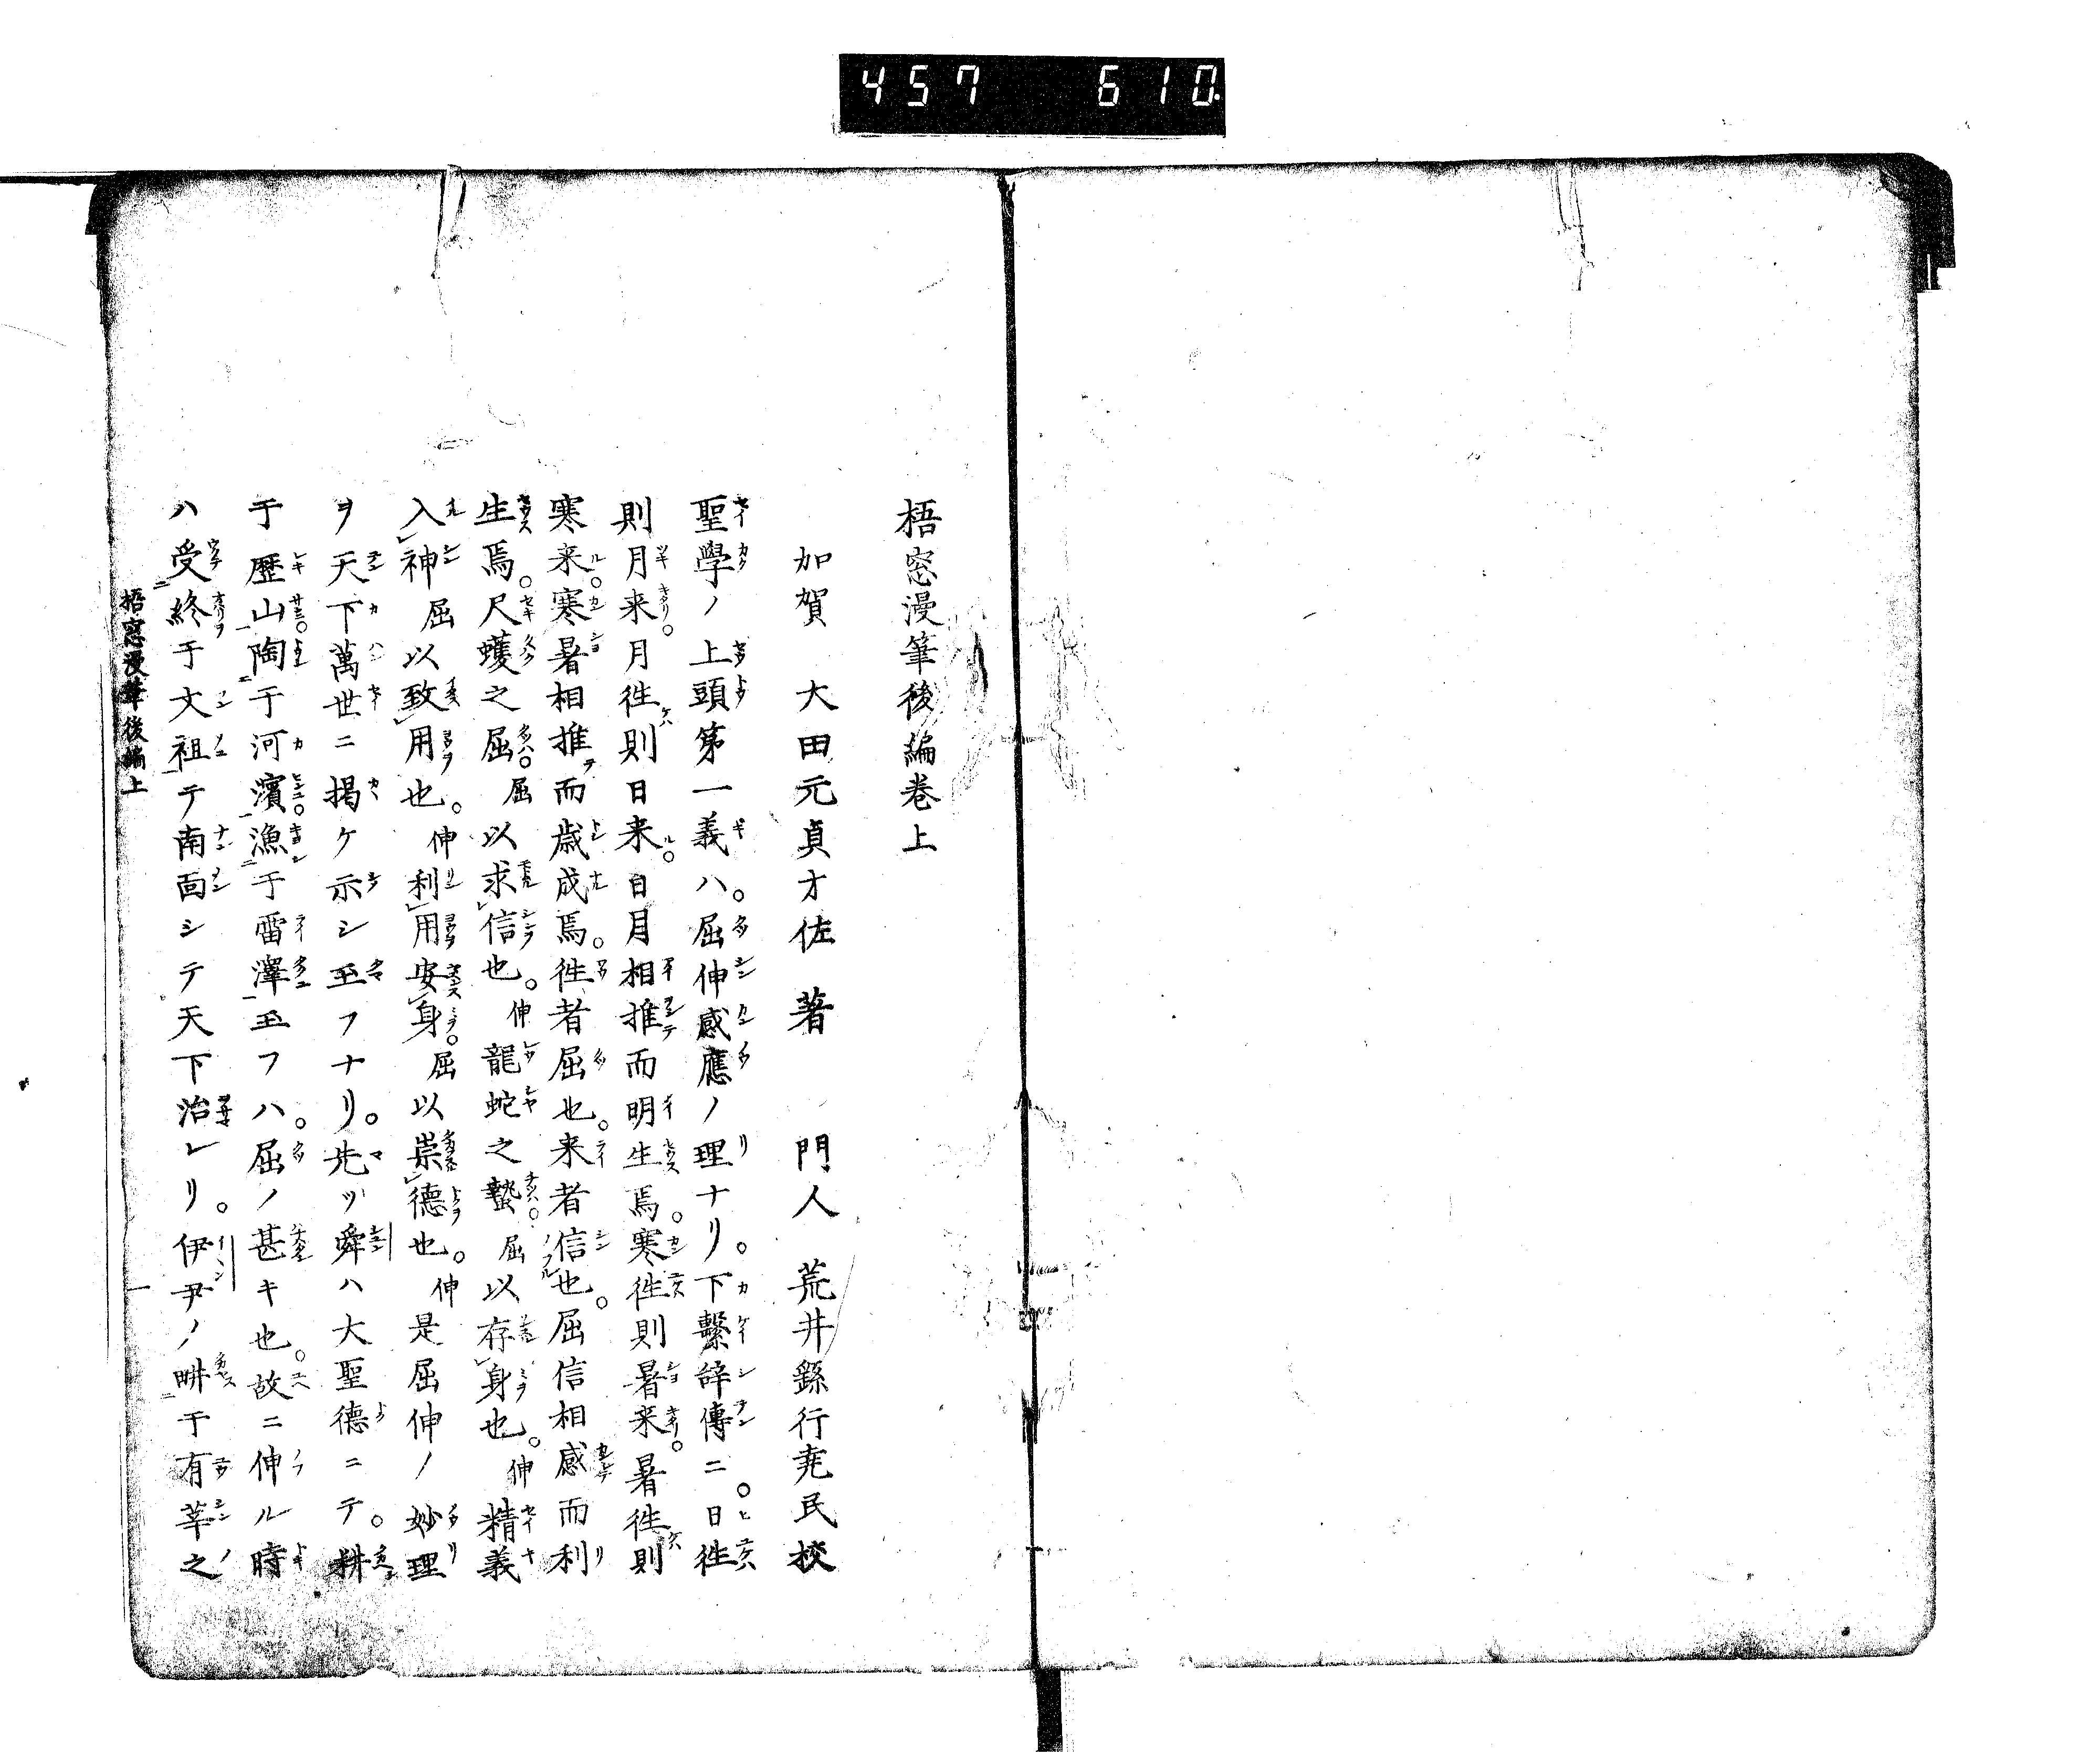 457 610
梧窓漫筆後編巻上
加賀 大田元貞才佐 著 門人 荒井繇行尭民校
聖學ノ上頭第一義ハ。屈伸感應ノ理ナリ。下繫辭傳ニ。日徃
則月来。月徃則日来。日月相推而明生焉。寒徃則暑来。暑徃則
寒来。寒暑相推而歳成焉。徃者屈也。来者信也。屈信相感而利
生焉。尺蠖之屈。屈以求信也。伸龍蛇之蟄。屈以存身也。伸精義
入神屈以致用也。伸利用安身。屈以崇德也。伸是屈伸ノ妙理
ヲ天下萬世ニ掲ケ示シ玉フナリ。先ヅ舜ハ大聖德ニテ。耕
于歷山。陶于河濱。漁于雷澤玉フハ。屈ノ甚キ也。故ニ伸ル時
ハ受終于文祖テ南面シテ天下治レリ。伊尹ノ畊于有莘之
梧窓漫筆後編上
一